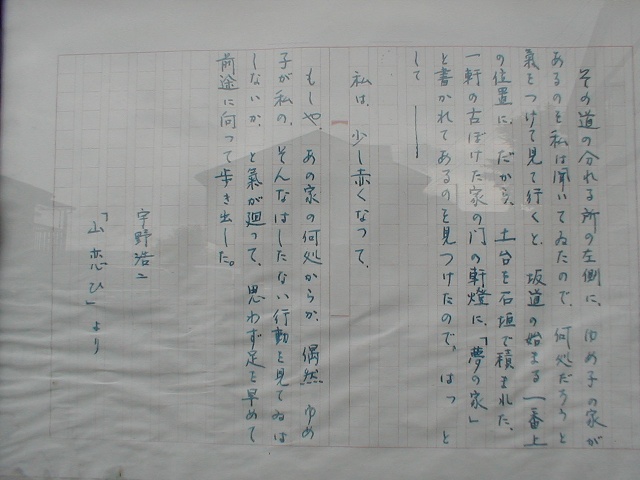 その道の分れる所の左側に、ゆめ子の家が
あるのを私は聞いてゐたので、何処だらうと
氣をつけて見て行くと、坂道の始まる一番上
の位置に、だから、土台を石垣で積まれた、
一軒の古ぼけた家の門の軒燈に、「夢の家」
と書かれてあるのを見つけたので、はっと
して――
私は、少し赤くなって、
もしや、あの家の何処からか、偶然ゆめ
子が私の、そんなはしたない行動を見てゐは
しないか、と氣が廻って、思わず足を早めて
前途に向って歩き出した。
宇野浩二
「山恋ひ」より